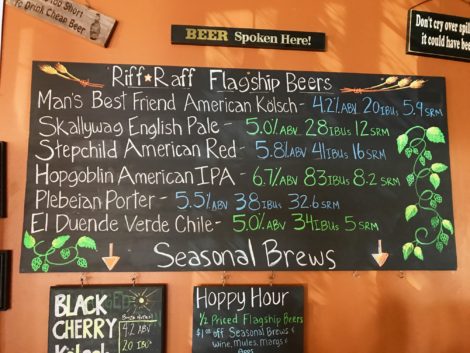 Too Short
to Drink Cheap Beer
BEER Spoken Here!
Don't cry over spil
it could have bee
Riff★Raff Flagship Beers
Man's Best Friend American Kölsch- 4.2% ABV 20 IBUs 5.9 SRM
Skallywag English Pale- 5.0% ABV 28 IBUs 12 SRM
Stepchild American Red- 5.8% ABV 41 IBUs 16 SRM
Hopgoblin American IPA- 6.7% ABV 83 IBUs 8.2 SRM
Plebeian Porter- 5.5% ABV 38 IBUs 32.6 SRM
El Duende Verde Chile- 5.0% ABV 34 IBUs 5 SRM
Seasonal Brews
BLACK
CHERRY
Kölsch
4.2 ABV
20 IBUs
Hoppy Hour
1/2 Priced Flagship Beers
$1 off Seasonal Brews &
wine, Mules, Margs &